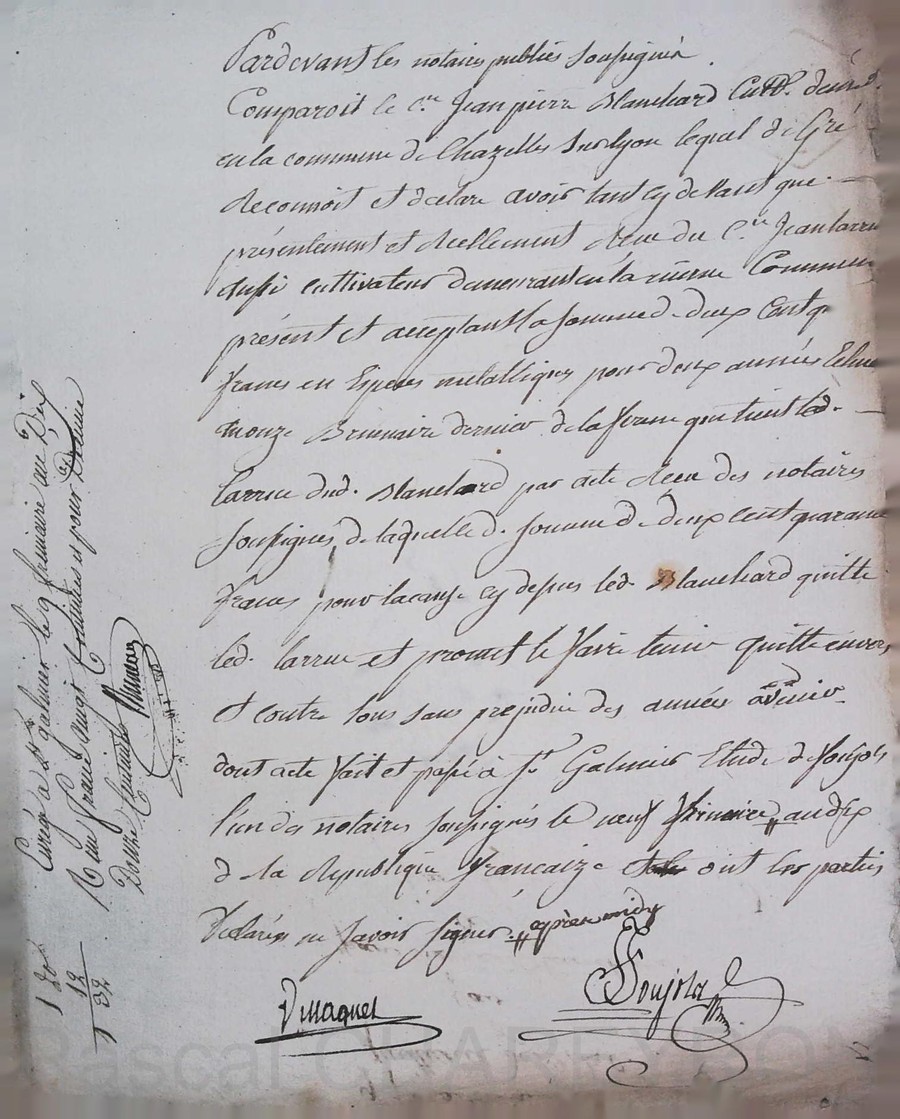 Pardevant les notaires publics soussignés
Comparoit le C.en Jean pierre Blanchard Cult.r demeu.t
en la commune de Chazelles sur lyon lequel de Gré
Reconnoit et déclare avoir tant cy devant que
présentement et réellement Receu du C.en Jean larrue
aussi cultivateur demeurant en la même Commune
présent et acceptant la somme de deux Cent q
francs en Especes métalliques pour deux années Echue
onze Brumaire dernier de la ferme que tient led.
larrue dud. Blanchard par acte Receu des notaires
soussignés, de laquelle d. somme de deux cent quarante
francs pour la cause cy dessus led. Blanchard quitte
led. larrue et promet le faire tenir quitte envers
et contre tous sans prejudice des années avenir
dont acte fait et passé à S.t Galmier Etude de Soujols
l'un des notaires soussignés le neuf frimaire an dix
de la Republique françaize et ont les parties
déclarés ne savoir signer. après midy
Soujola
Enregé à S.t galmier le 9 frimaire an Dix
Reçu franc vingt Centimes et pour Décime
Douze Centimes
1 20
12
1 32
Pascal CHAREYRON